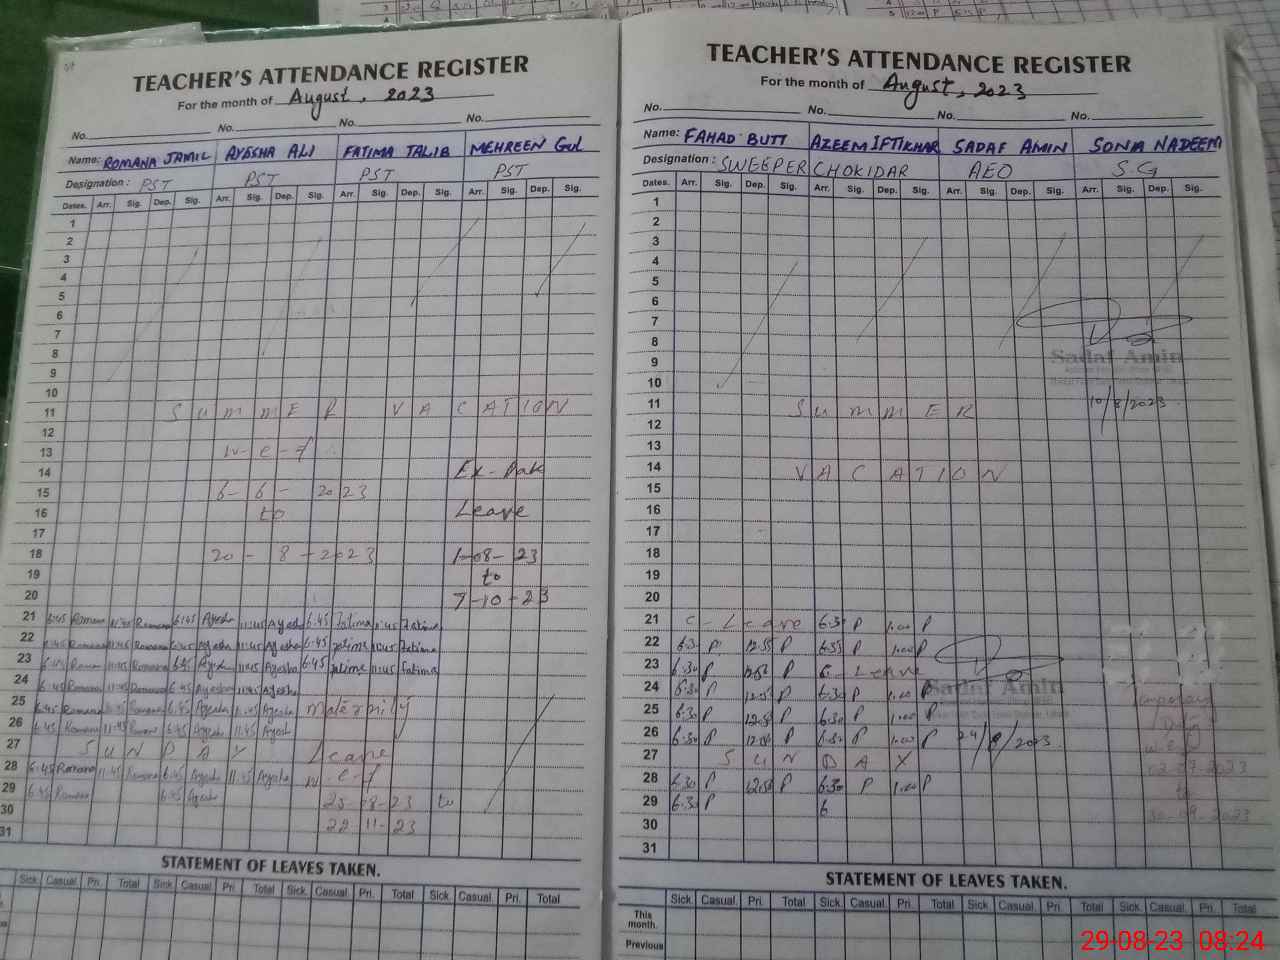 TEACHER'S ATTENDANCE REGISTER
For the month of August, 2023
No. No. No. No.
Name: ROMANA JAMIL AYESHA ALI FATIMA TALIB MEHREEN GUL
Designation: PST PST PST PST
Dates. Arr. Sig. Dep. Sig. Arr. Sig. Dep. Sig. Arr. Sig. Dep. Sig. Arr. Sig. Dep. Sig.
1
2
3
4
5
6
7
8
9
10
11 SUMMER VACATION
12
13 w-e-f
14 Ex-Pak
15 6-6-2023
16 to Leave
17
18 20-8-2023 1-08-23
19 to
20 7-10-23
21 6:45 Romana 11:45 Romana 6:45 Ayesha 11:45 Ayesha 6:45 Fatima 11:45 Fatima
22 6:45 Romana 11:45 Romana 6:45 Ayesha 11:45 Ayesha 6:45 Fatima 11:45 Fatima
23 6:45 Romana 11:45 Romana 6:45 Ayesha 11:45 Ayesha 6:45 Fatima 11:45 Fatima
24 6:45 Romana 11:45 Romana 6:45 Ayesha 11:45 Ayesha
25 6:45 Romana 11:45 Romana 6:45 Ayesha 11:45 Ayesha Maternity
26 6:45 Romana 11:45 Romana 6:45 Ayesha 11:45 Ayesha
27 SUNDAY Leave
28 6:45 Romana 11:45 Romana 6:45 Ayesha 11:45 Ayesha w.e.f
29 6:45 Romana 6:45 Ayesha 25-08-23 to
30 22-11-23
31
STATEMENT OF LEAVES TAKEN.
Sick. Casual. Pri. Total Sick. Casual. Pri. Total Sick. Casual. Pri. Total Sick. Casual. Pri. Total
TEACHER'S ATTENDANCE REGISTER
For the month of August, 2023
No. No. No. No.
Name: FAHAD BUTT AZEEM IFTIKHAR SADAF AMIN SONIA NADEEM
Designation: SWEEPER CHOKIDAR AEO S.G
Dates. Arr. Sig. Dep. Sig. Arr. Sig. Dep. Sig. Arr. Sig. Dep. Sig. Arr. Sig. Dep. Sig.
1
2
3
4
5
6
7
8
Sadaf Amin
9
10
11 SUMMER 10/8/2023
12
13
14 VACATION
15
16
17
18
19
20
21 C-Leave 6:30 P 1:00 P
22 6:30 P 12:55 P 6:35 P 1:00 P
23 6:30 P 12:50 P C-Leave
24 6:30 P 12:55 P 6:30 P 1:00 P Sadaf Amin
25 6:30 P 12:50 P 6:30 P 1:00 P
26 6:30 P P 6:30 P 1:00 P 24/8/2023
27 SUNDAY
28 6:30 P 12:50 P 6:30 P 1:00 P
29 6:30 P 6
30
31
STATEMENT OF LEAVES TAKEN.
Sick. Casual. Pri. Total Sick. Casual. Pri. Total Sick. Casual. Pri. Total Sick. Casual. Pri. Total
This month.
Previous
29-08-23 08:24